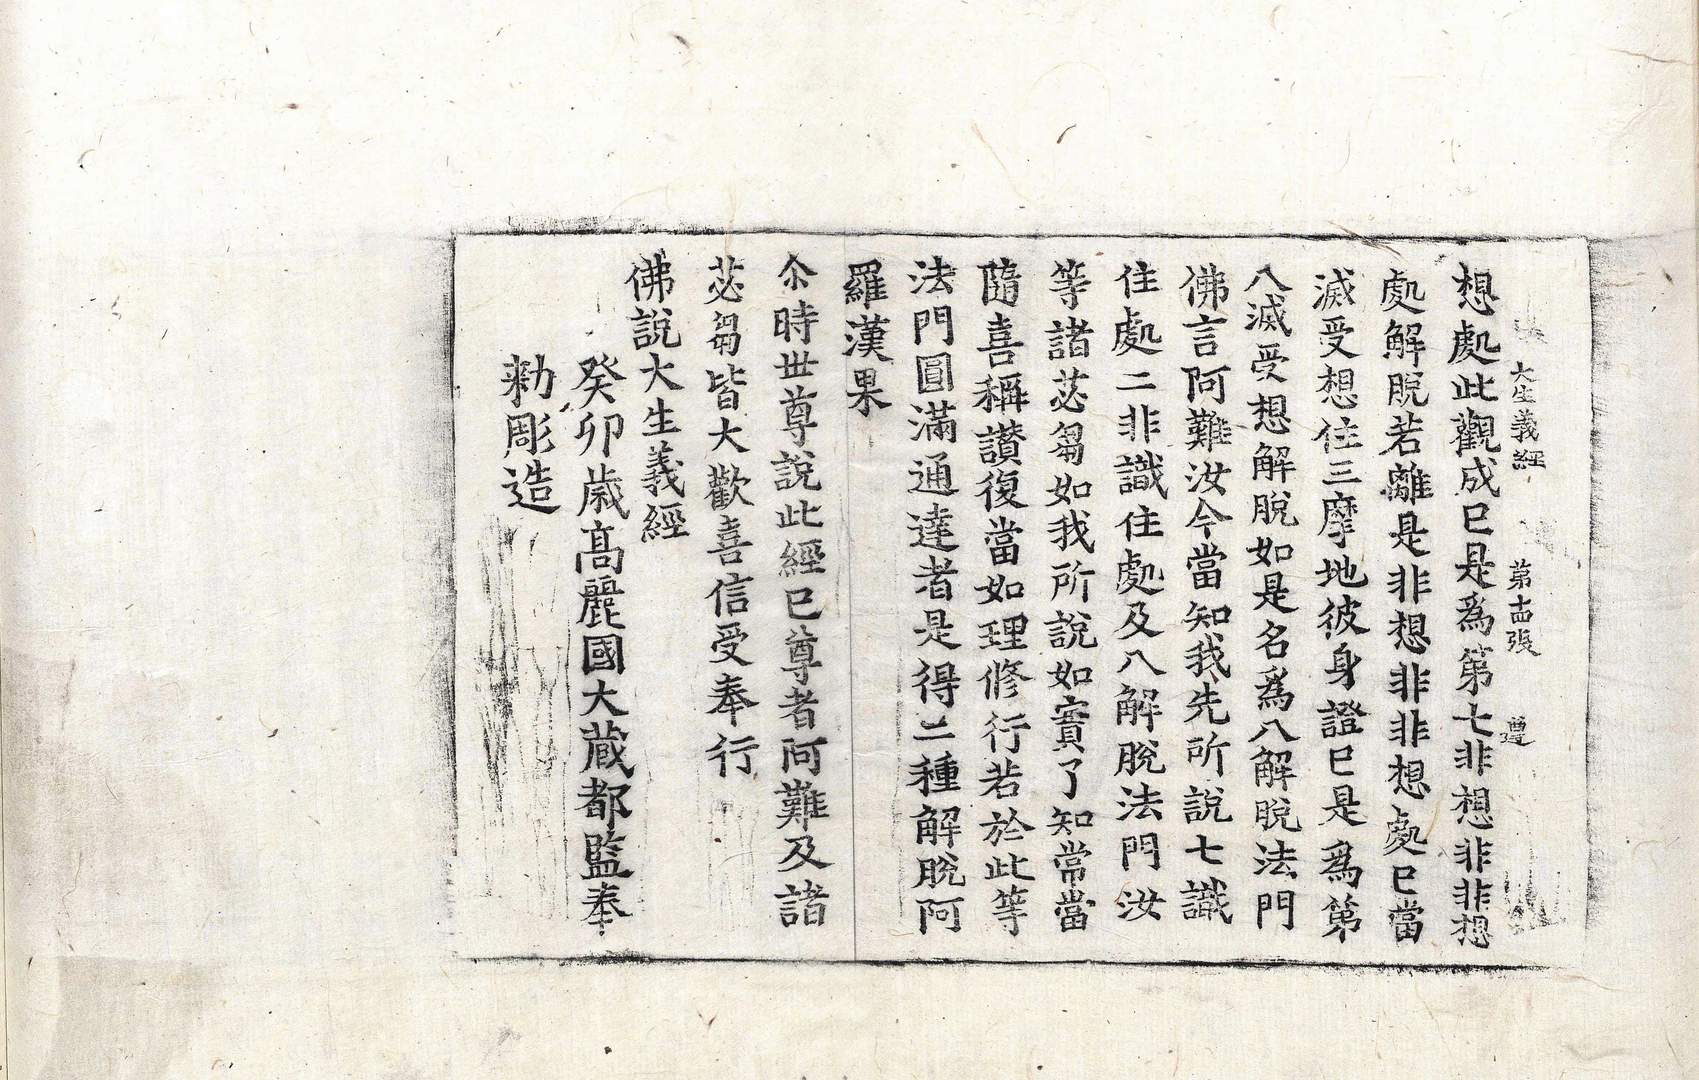 大生義經 第十四張 遵
想處此觀成已是爲第七非想非非想
處解脫若離是非想非非想處已當
滅受想住三摩地彼身證已是爲第
八滅受想解脫如是名爲八解脫法門
佛言阿難汝今當知我先所說七識
住處二非識住處及八解脫法門汝
等諸苾芻如我所說如實了知常當
隨喜稱讃復當如理修行若於此等
法門圓滿通達者是得二種解脫阿
羅漢果
尒時世尊說此經已尊者阿難及諸
苾芻皆大歡喜信受奉行
佛說大生義經
癸卯歲高麗國大藏都監奉
勅彫造